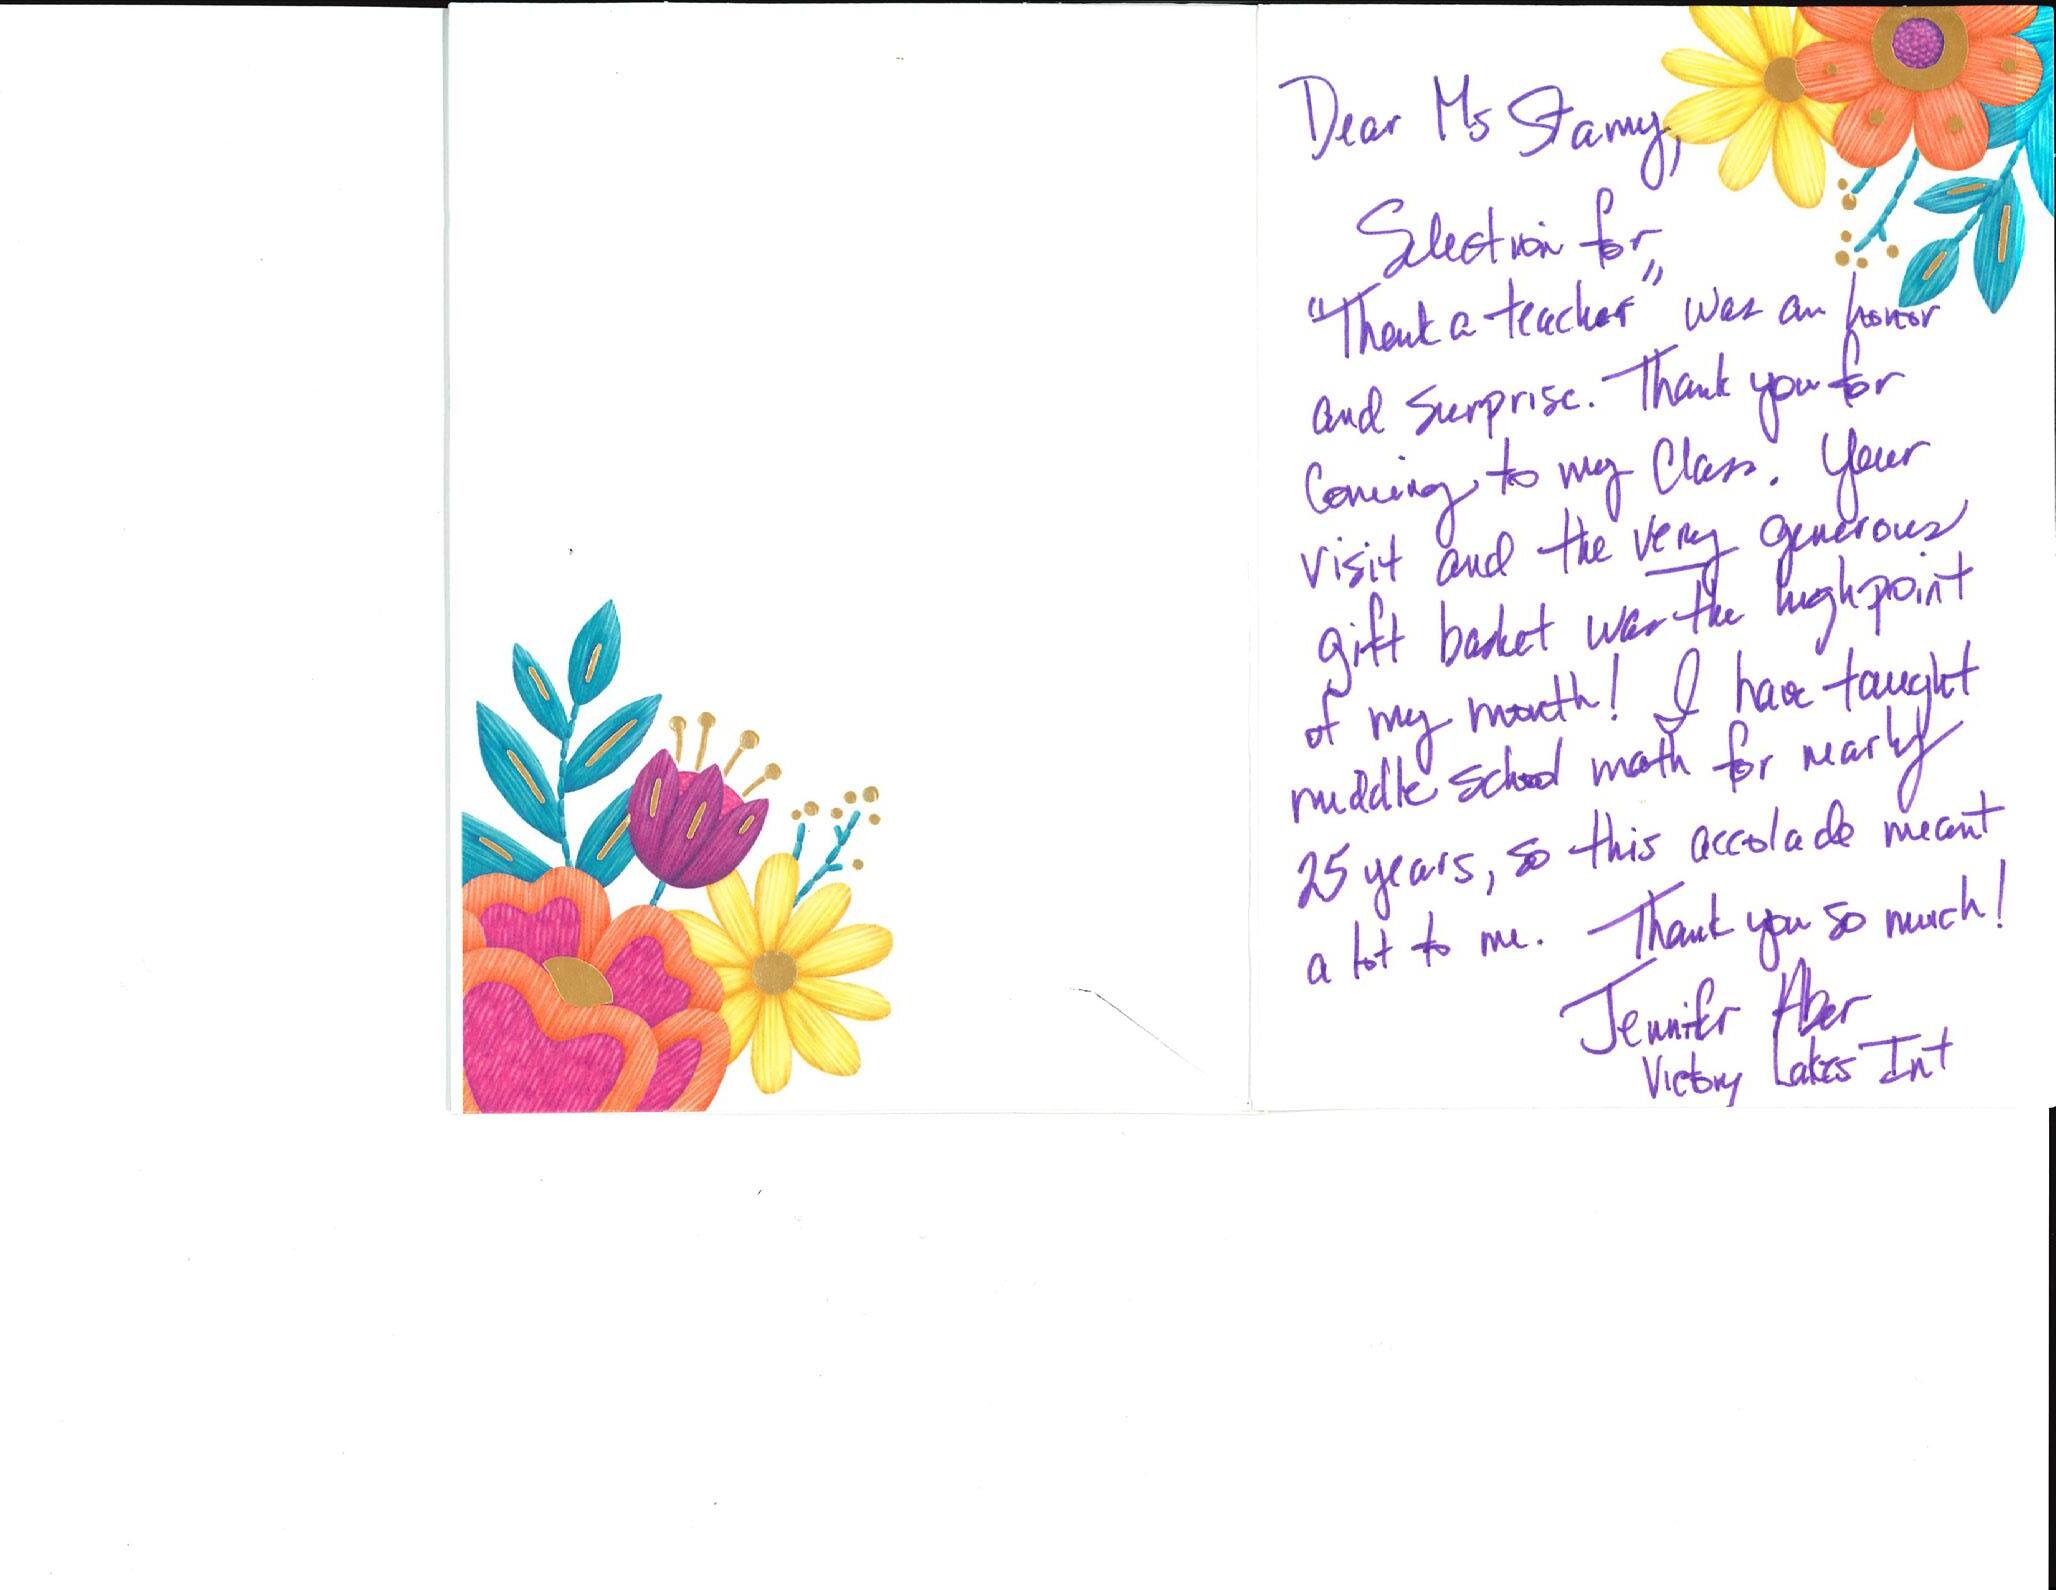 Dear Ms Stamy,
Selection for
"Thank a teacher" was an honor
and surprise. Thank you for
Coming to my Class. Your
visit and the very generous
gift basket was the highpoint
of my month! I have taught
middle school math for nearly
25 years, so this accolade meant
a lot to me. Thank you so much!
Jennifer Aber
Victory Lakes Int